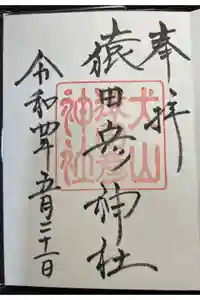 奉拝
猿田彦神社
犬山
猿田彦
神社
令和四年五月二十一日